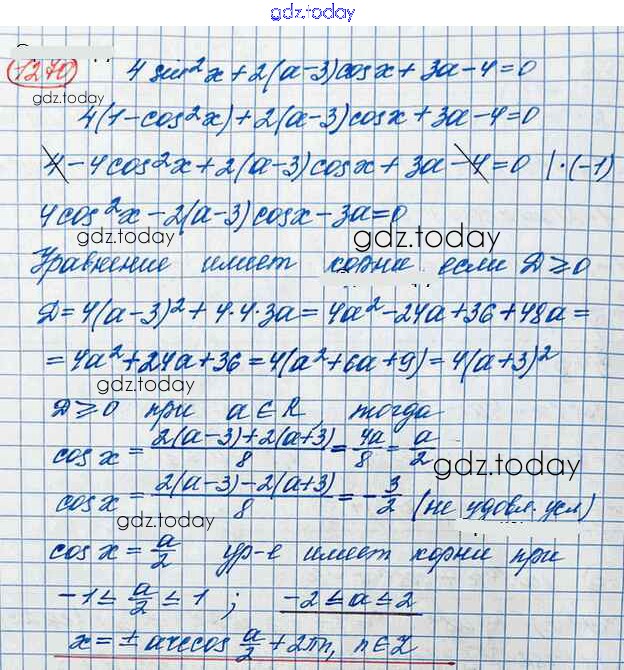 gdz.today
1270) 4 sin²x + 2(a-3)cosx + 3a - 4 = 0
gdz.today
4(1-cos²x) + 2(a-3)cosx + 3a - 4 = 0
4 - 4cos²x + 2(a-3)cosx + 3a - 4 = 0 | · (-1)
4cos²x - 2(a-3)cosx - 3a = 0
gdz.today
gdz.today
Уравнение имеет корни если D ≥ 0
D = 4(a-3)² + 4·4·3a = 4a² - 24a + 36 + 48a =
= 4a² + 24a + 36 = 4(a² + 6a + 9) = 4(a+3)²
gdz.today
D ≥ 0 при a ∈ R, тогда
cos x = (2(a-3)+2(a+3))/8 = 4a/8 = a/2
gdz.today
cos x = (2(a-3)-2(a+3))/8 = -3/2 (не удовл. усл)
gdz.today
cos x = a/2 ур-е имеет корни при
-1 ≤ a/2 ≤ 1 ; -2 ≤ a ≤ 2
x = ± arccos a/2 + 2πn, n ∈ Z